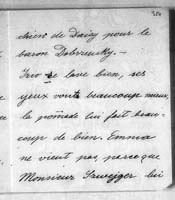 chien de Daisy pour le
baron Dobrzensky. —
se lave bien, ses
yeux vont beaucoup mieux,
la pomade lui fait beau-
coup de bien. Emma
ne vient pas, parceque
Monsieur lui